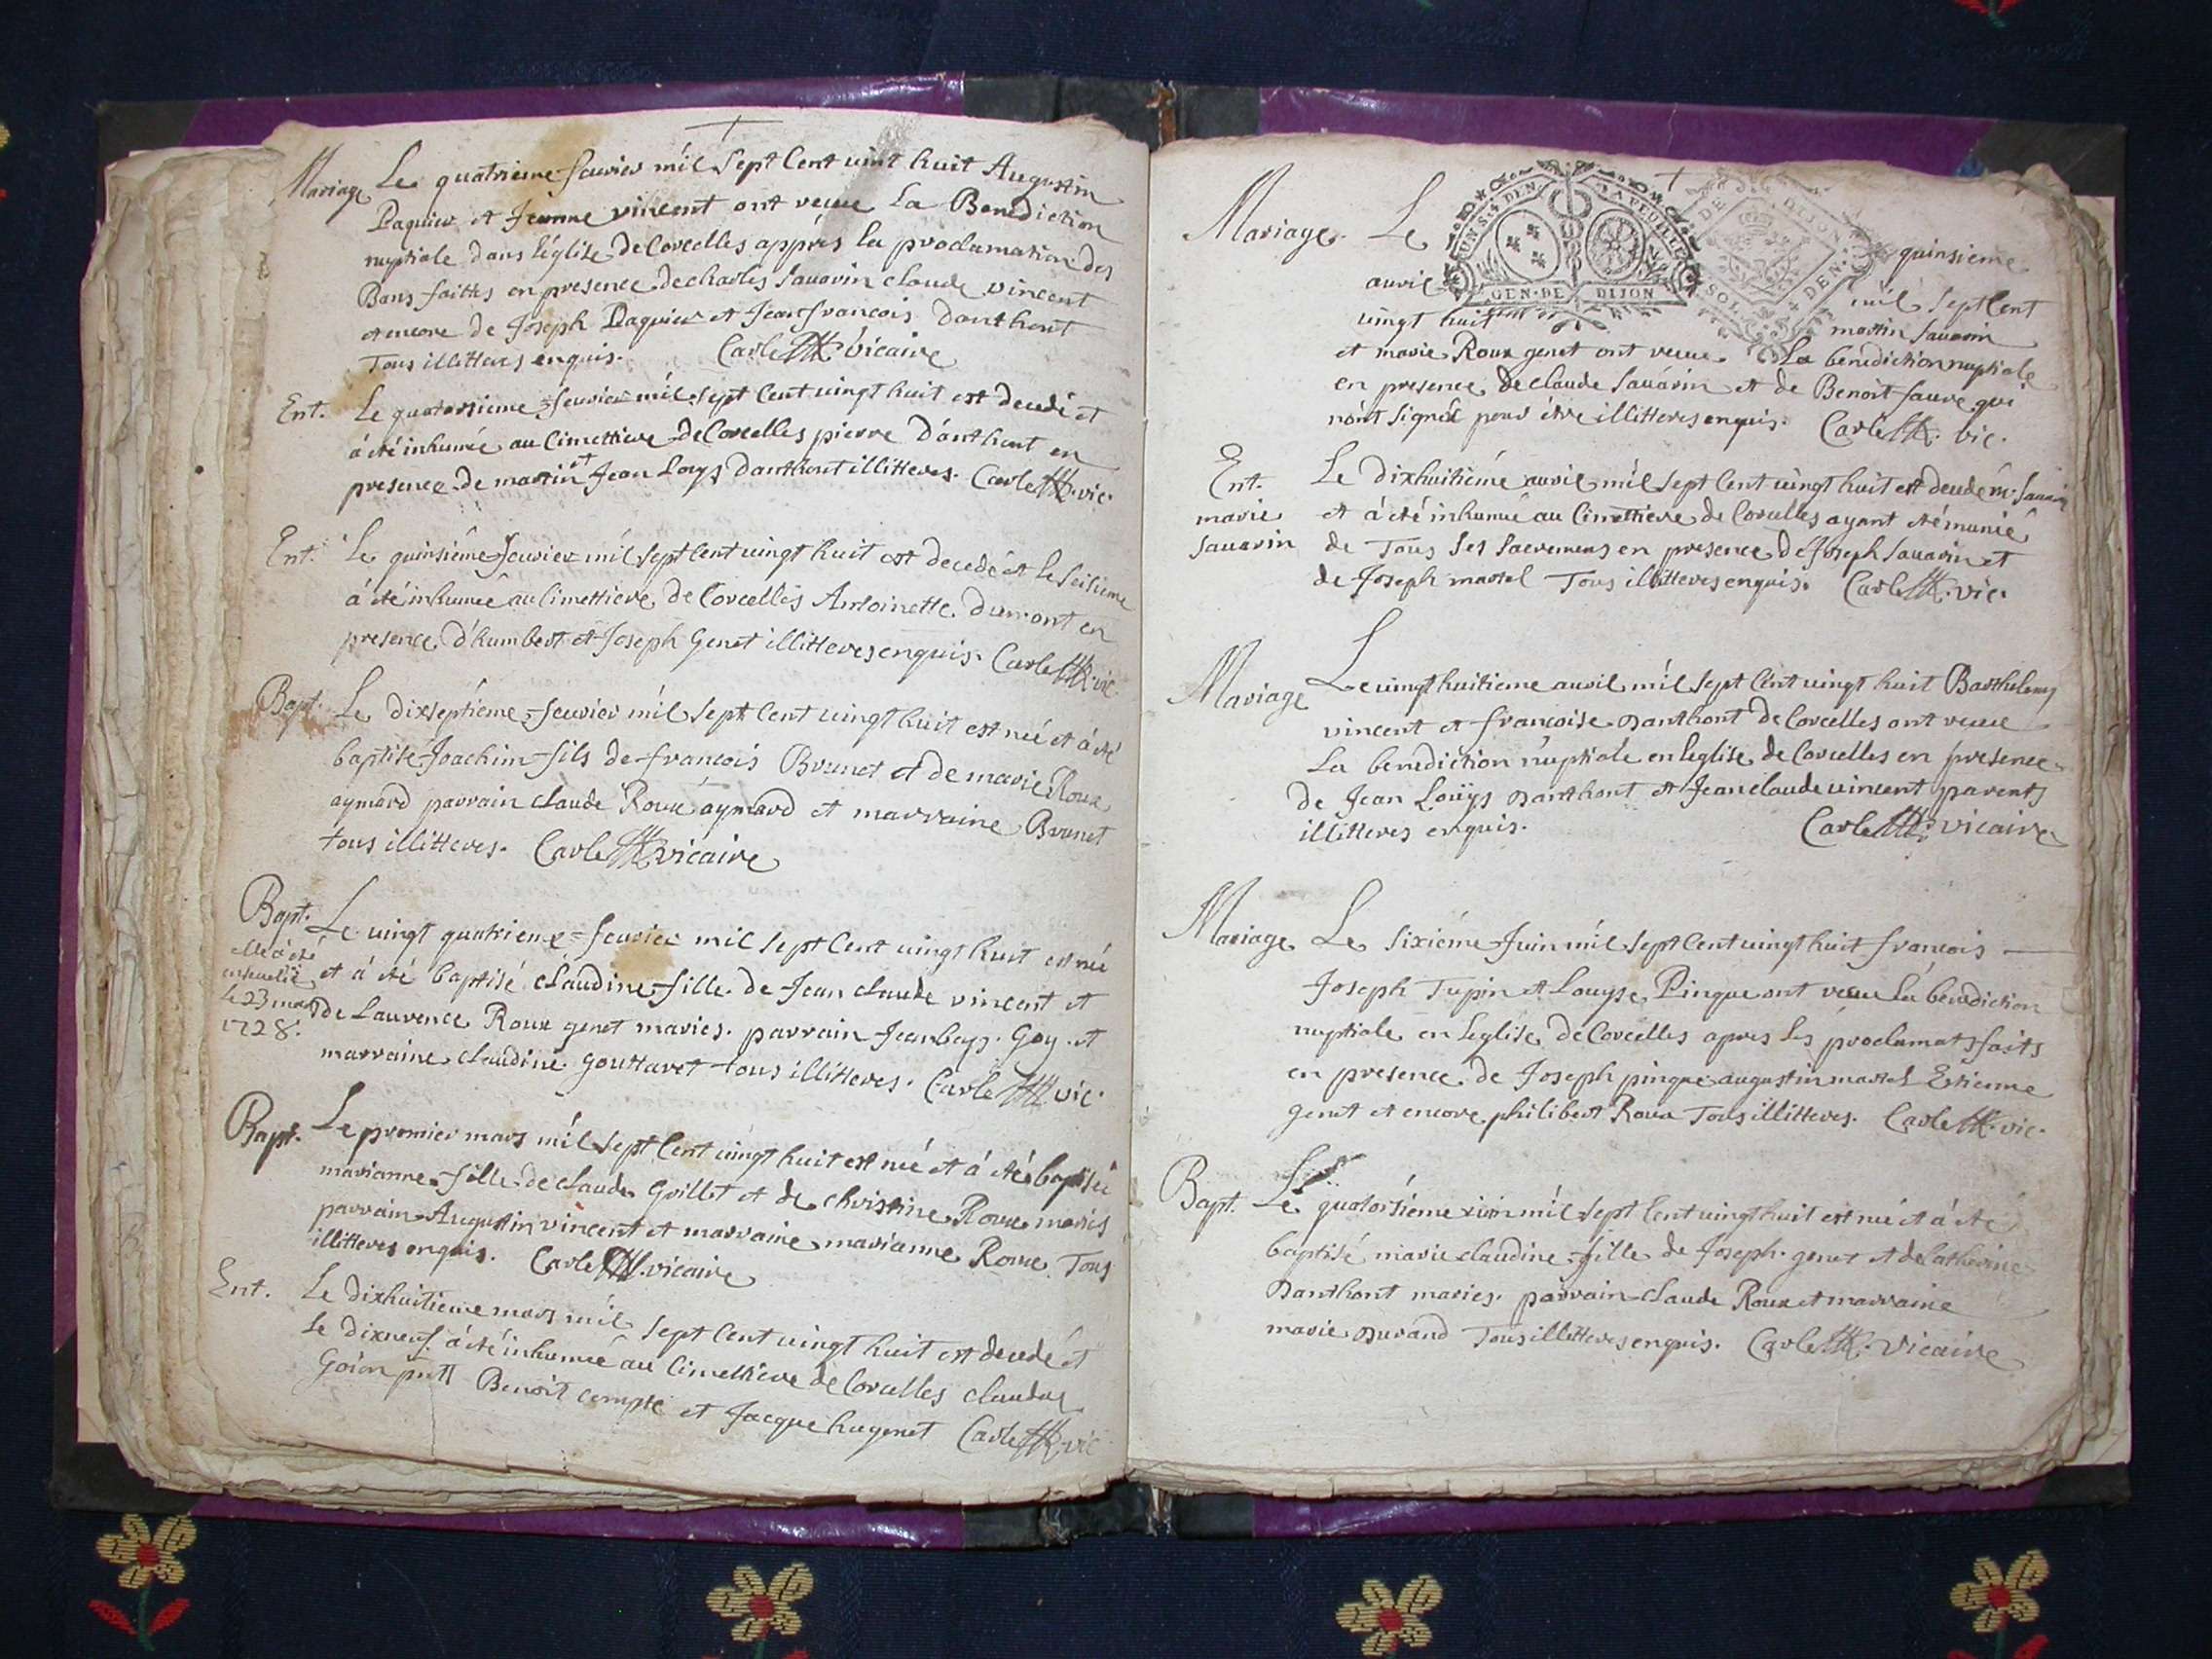 Mariage Le quatrieme feurier mil sept cent uint huit Augustin
Paquier et Jeanne vincent ont receue La Benediction
nuptiale dans l'églize de Corcelles apprés la proclamation des
Bans faittes en presence de charles Sauarin claude vincent
et encore de Joseph Paquier et Jean francois Danthont
Tous illitteres enquis. Carle vicaire
Ent. Le quatorsieme feurier mil sept cent uingt huit est decedé et
á été inhumée au Cimettiere de Corcelles pierre Danthont en
presence de martin et Jean Louys Danthont illitteres. Carle vic.
Ent. Le quinsiéme feurier mil sept cent uingt huit est decedé et le seisieme
á été inhumée au Cimettiere de Corcelles Antoinette Dumont en
presence d'humbert et Joseph Genet illitteres enquis. Carle vic.
Bapt. Le dixseptiéme feurier mil sept cent uingt huit est né et á été
baptisé Joachim fils de francois Brunet et de marie Roux
aymard parrain claude Roux aymard et marraine Brunet
tous illitteres. Carle vicaire
Bapt. Le uingt quatrieme feurier mil sept cent uingt huit est née
elle á été
enseuelie et á été baptisé claudine fille de Jean claude vincent et
le 23 mars de Laurence Roux genet maries. parrain Jean bap. Goy. et
1728. marraine claudine gouttaret tous illitteres. Carle vic.
Bapt. Le premier mars mil sept cent uingt huit est né et á été baptisée
marianne fille de claude Grillet et de christine Roux maries
parrain Augustin vincent et marraine marianne Roux Tous
illitteres enquis. Carle vicaire
Ent. Le dixhuitieme mars mil sept cent uingt huit est decedé et
le dixneuf. á été inhumée au Cimettiere de Corcelles claudas
Goion Benoit compte et Jacque hugenet Carle vic
UN S. 4 DEN. LA FEUILLE
GEN. DE DIJON
DE DIJON
SOL. 4 DEN.
Mariage. Le quinsieme
auril mil sept Cent
uingt huit martin Sauarin
et marie Roux genet ont receue La benediction nuptiale
en presence de claude Sauárin et de Benoit faure qui
n'ont signéz pour étre illitteres enquis. Carle vic.
Ent. Le Dixhuitiéme auril mil sept Cent uingt huit est decedé m. Sauarin
marie et á été inhumée au Cimettiere de Corcelles ayant été munie
Sauarin de Tous ses sacremens en presence de Joseph Sauarin et
de Joseph martel Tous illitteres enquis. Carle vic.
Mariage Le uingt huitieme auril mil sept Cent uingt huit Barthelemy
vincent et francoise Danthont de Corcelles ont receue
La benediction nuptiale en leglise de Corcelles en presence
de Jean Loüys Danthont et Jean claude uincent parents
illitteres enquis. Carle vicaire
Mariage Le sixiéme Juin mil sept Cent uingt huit francois
Joseph Tupin et Louyse Pingue ont receue La benediction
nuptiale en leglise de Corcelles apres les proclamats faits
en presence de Joseph pingue augustin martel Etienne
genet et encore philibert Roux Tous illitteres. Carle vic.
Bapt. Le quatorsiéme iuin mil sept Cent uingt huit est né et á été
baptisé marie claudine fille de Joseph genet et de Catherine
Danthont maries. parrain claude Roux et marraine
marie Durand Tous illitteres enquis. Carle Vicaire